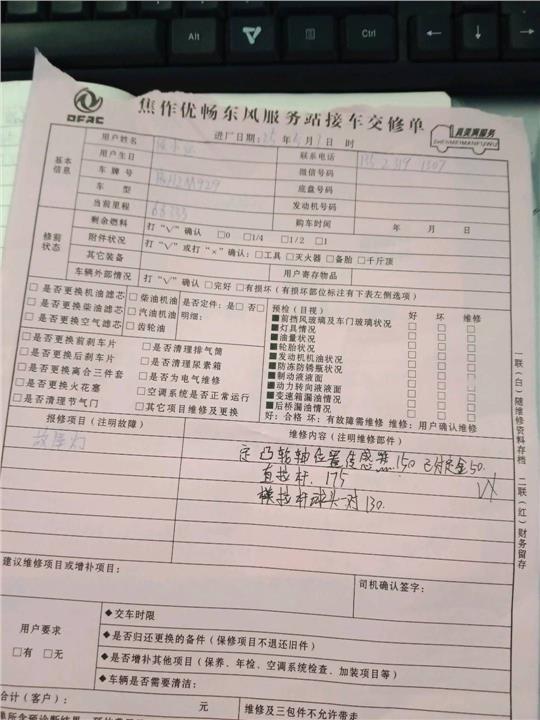 Alt
Ctrl
DFAC
焦作优畅东风服务站接车交修单
真美满服务
ZHENMEIMANFUWU
进厂日期: 25 年 月 日 时
基本信息
用户姓名
联系电话
用户生日
微信号码
车牌号
底盘号
车型
发动机号码
当前里程 68333
购车时间 年 月 日
修前状态
剩余燃料 打“√”确认 □0 □1/4 □1/2 □1
附件状况 打“√”或打“×”确认: □工具 □灭火器 □备胎 □千斤顶
其它装备 用户寄存物品
车辆外部情况 打“√”确认 □完好 □有损坏 (有损坏部位标注有下表左侧选项)
□是否更换机油滤芯 □柴油机油 是否定件: 是□ 否□
□是否更换柴油滤芯 □汽油机油 明细:
□是否更换空气滤芯 □齿轮油
□是否更换前刹车片 □是否清理排气筒
□是否更换后刹车片 □是否清理尿素箱
□是否更换离合三件套 □是否为电气维修
□是否更换火花塞 □空调系统是否正常运行
□是否清理节气门 □其它项目维修及更换
预检 (目视) 好 坏 维修
■前挡风玻璃及车门玻璃状况 □ □ □
■灯具情况 □ □ □
■油量状况 □ □ □
■轮胎状况 □ □ □
■发动机机油状况 □ □ □
■防冻防锈瓶状况 □ □ □
■制动液液面 □ □ □
■动力转向液液面 □ □ □
■变速箱漏油情况 □ □ □
■后桥漏油情况 □ □ □
好: 合格 坏: 有故障需维修 维修: 用户确认维修
报修项目 (注明故障)
维修内容 (注明维修部件)
故障灯
定 凸轮轴位置传感器 150 已付定金50.
直拉杆. 175
横拉杆球头 对 130.
建议维修项目或增补项目:
司机确认签字:
用户要求
□有 □无
◆交车时限
◆是否归还更换的备件 (保修项目不退还旧件)
◆是否增补其他项目 (保养、年检、空调系统检查、加装项目等)
◆车辆是否需要清洁:
合计 (客户): 元
维修及三包件不允许带走
一联(白)随维修资料存档 二联(红)财务留存